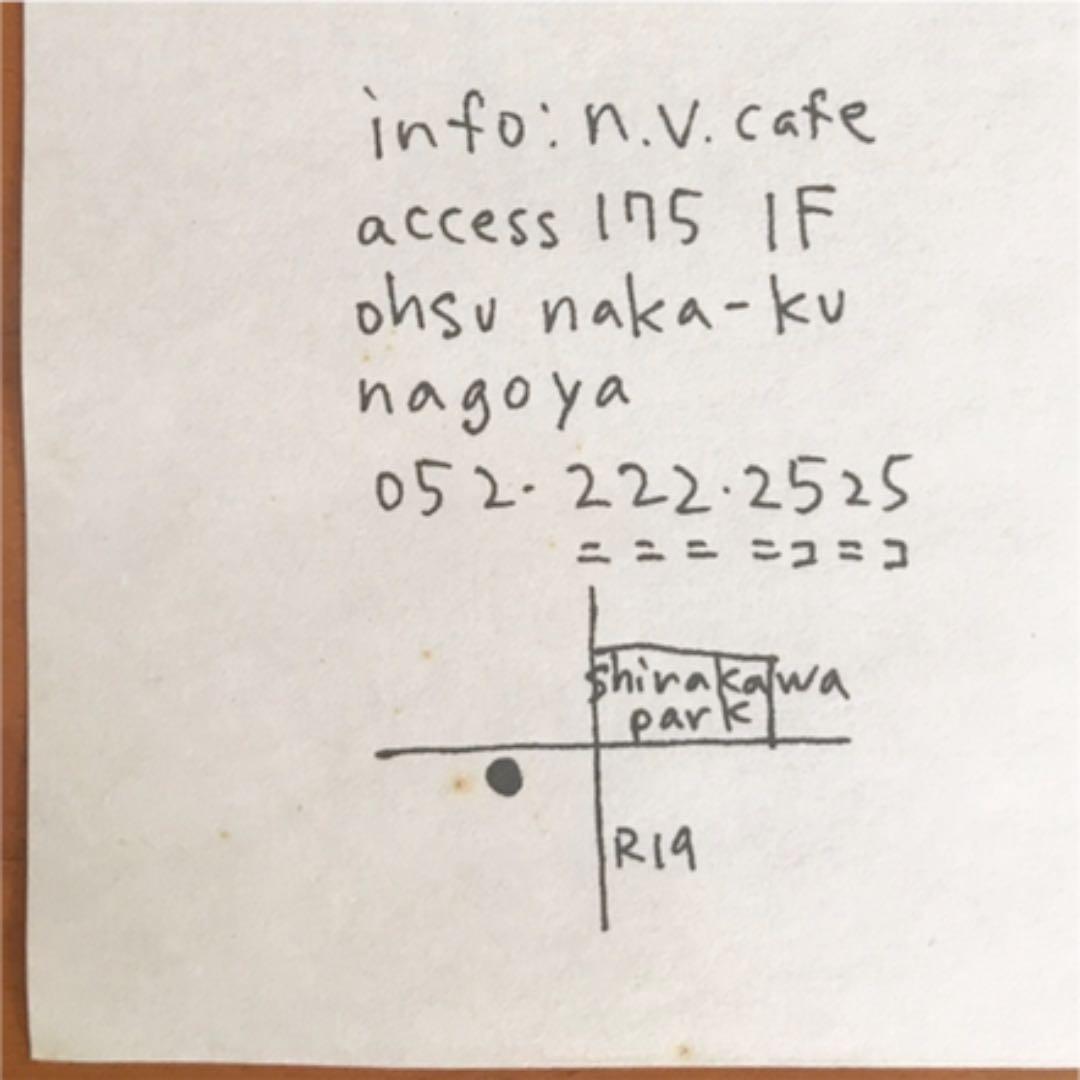 info: n.v. cafe
access 175 1F
ohsu naka-ku
nagoya
052・222・2525
ニニニ ニコニコ
shirakawa
park
R19